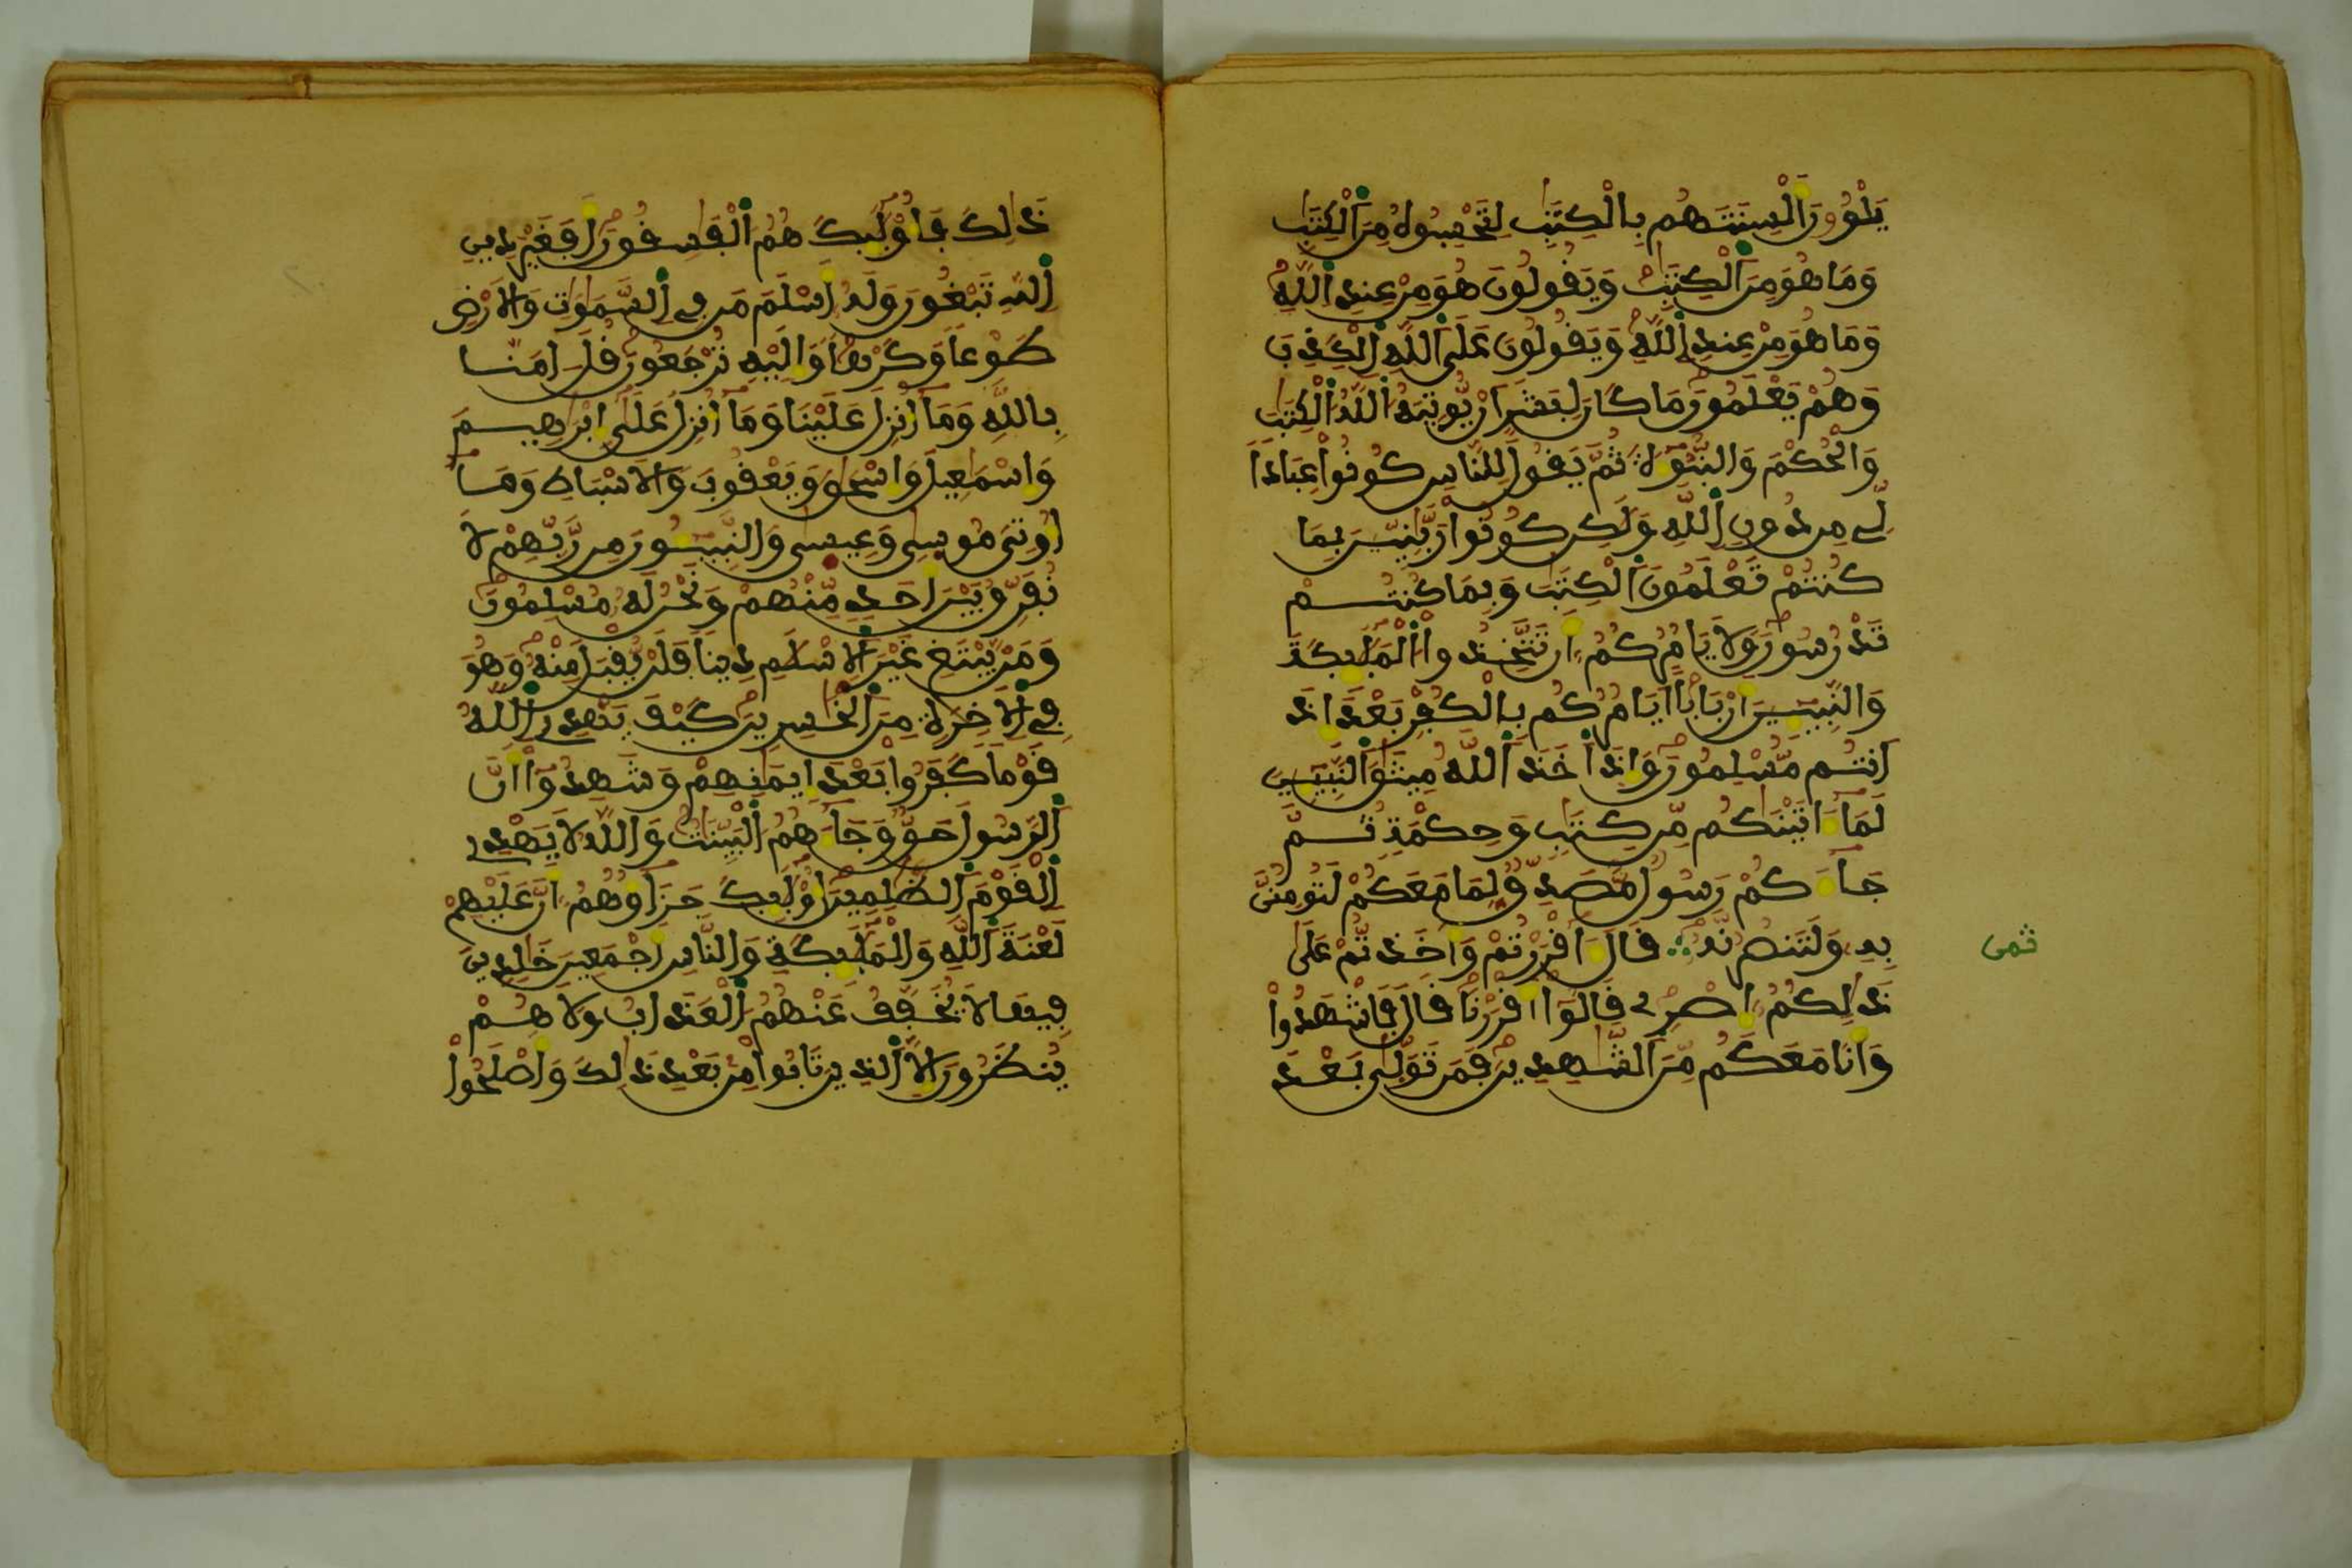 يَلْوُۥنَ أَلْسِنَتَهُم بِالْكِتَٰبِ لِتَحْسِبُوهُ مِنَ ٱلْكِتَٰبِ
وَمَا هُوَ مِنَ ٱلْكِتَٰبِ وَيَقُولُونَ هُوَ مِنْ عِندِ ٱللَّهِ
وَمَا هُوَ مِنْ عِندِ ٱللَّهِ وَيَقُولُونَ عَلَى ٱللَّهِ ٱلْكَذِبَ
وَهُمْ يَعْلَمُونَ مَا كَانَ لِبَشَرٍ اَنْ يُّوتِيَهُ ٱللَّهُ ٱلْكِتَٰبَ
وَالْحُكْمَ وَالنُّبُوٓءَةَ ثُمَّ يَقُولَ لِلنَّاسِ كُونُواْ عِبَاداً
لِّے مِن دُونِ ٱللَّهِ وَلَٰكِن كُونُواْ رَبَّٰنِيِّينَ بِمَا
كُنتُمْ تَعْلَمُونَ ٱلْكِتَٰبَ وَبِمَا كُنتُمْ
تَدْرُسُونَ وَلَا يَامُرُكُمُۥ أَن تَتَّخِذُواْ ٱلْمَلَٰٓئِكَةَ
وَالنَّبِيٓـِٕينَ أَرْبَاباً اَيَامُرُكُم بِالْكُفْرِ بَعْدَ إِذَ
اَنتُم مُّسْلِمُونَ وَإِذَ اَخَذَ ٱللَّهُ مِيثَٰقَ ٱلنَّبِيٓـِٕينَ
لَمَآ ءَاتَيْنَٰكُم مِّن كِتَٰبٍ وَحِكْمَةٍ ثُمَّ
جَآءَكُمْ رَسُولٌ مُّصَدِّقٌ لِّمَا مَعَكُمْ لَتُومِنُنَّ
بِهِۦ وَلَتَنصُرُنَّهُۥ قَالَ ءَآقْرَرْتُمْ وَأَخَذتُّمْ عَلَىٰ
ذَٰلِكُمُۥ إِصْرِے قَالُوٓاْ أَقْرَرْنَا قَالَ فَاشْهَدُواْ
وَأَنَا مَعَكُم مِّنَ ٱلشَّٰهِدِينَ فَمَن تَوَلَّىٰ بَعْدَ
ثمن
ذَٰلِكَ فَأُوْلَٰٓئِكَ هُمُ ٱلْفَٰسِقُونَ أَفَغَيْرَ دِينِ
ٱللَّهِ تَبْغُونَ وَلَهُۥٓ أَسْلَمَ مَن فِے ٱلسَّمَٰوَٰتِ وَالَارْضِ
طَوْعاً وَكَرْهاً وَإِلَيْهِ تُرْجَعُونَ قُلَ اٰمَنَّا
بِاللَّهِ وَمَآ أُنزِلَ عَلَيْنَا وَمَآ أُنزِلَ عَلَىٰٓ إِبْرَٰهِيمَ
وَإِسْمَٰعِيلَ وَإِسْحَٰقَ وَيَعْقُوبَ وَالَاسْبَاطِ وَمَآ
أُوتِيَ مُوسَىٰ وَعِيسَىٰ وَالنَّبِيٓـُٔونَ مِن رَّبِّهِمْ لَا
نُفَرِّقُ بَيْنَ أَحَدٍ مِّنْهُمْ وَنَحْنُ لَهُۥ مُسْلِمُونَ
وَمَنْ يَّبْتَغِ غَيْرَ ٱلِاسْلَٰمِ دِيناً فَلَنْ يُّقْبَلَ مِنْهُ وَهُوَ
فِے ٱلَاخِرَةِ مِنَ ٱلْخَٰسِرِينَ كَيْفَ يَهْدِے ٱللَّهُ
قَوْماً كَفَرُواْ بَعْدَ إِيمَٰنِهِمْ وَشَهِدُوٓاْ أَنَّ
ٱلرَّسُولَ حَقٌّ وَجَآءَهُمُ ٱلْبَيِّنَٰتُ وَاللَّهُ لَا يَهْدِے
ٱلْقَوْمَ ٱلظَّٰلِمِينَ أُوْلَٰٓئِكَ جَزَآؤُهُمُۥٓ أَنَّ عَلَيْهِمْ
لَعْنَةَ ٱللَّهِ وَالْمَلَٰٓئِكَةِ وَالنَّاسِ أَجْمَعِينَ خَٰلِدِينَ
فِيهَا لَا يُخَفَّفُ عَنْهُمُ ٱلْعَذَابُ وَلَا هُمْ
يُنظَرُونَ إِلَّا ٱلذِينَ تَابُواْ مِنۢ بَعْدِ ذَٰلِكَ وَأَصْلَحُواْ